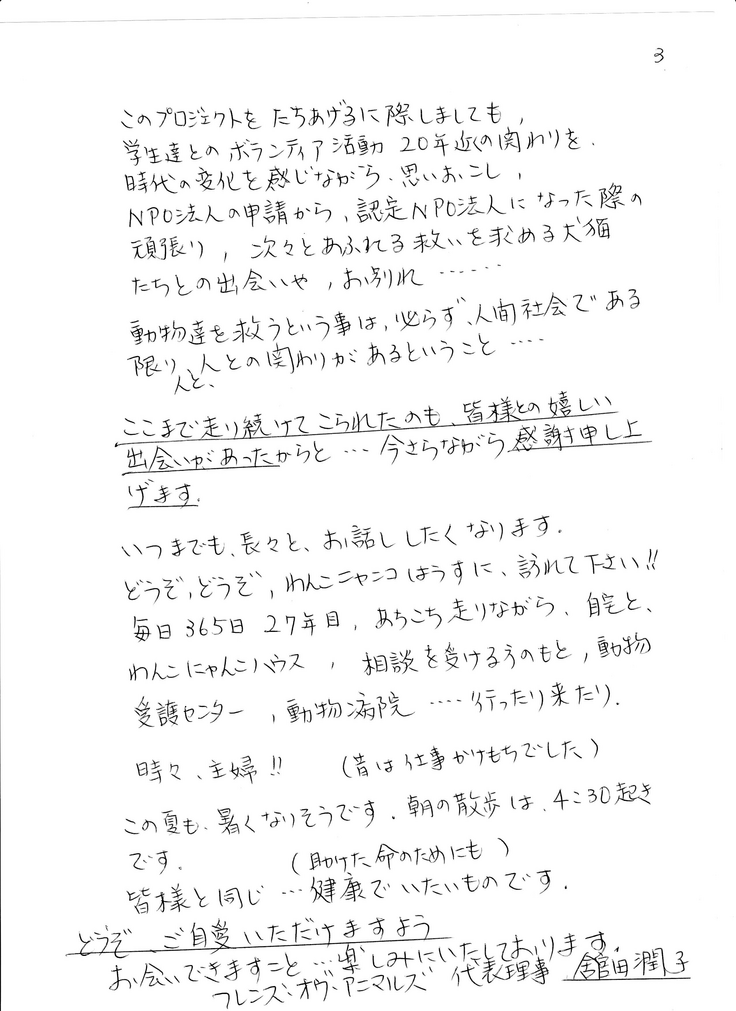 3
このプロジェクトをたちあげるに際しましても,
学生達とのボランティア活動 20年近くの関わりを、
時代の変化を感じながら、思いおこし,
NPO法人の申請から,認定NPO法人になった際の
頑張り,次々とあふれる救いを求める犬猫
たちとの出会いや,お別れ‥‥‥
動物達を救うという事は,必らず、人間社会である
限り、人との関わりがあるということ‥‥
人と、
ここまで走り続けてこられたのも、皆様との嬉しい
出会いがあったからと…今さらながら感謝申し上
げます.
いつまでも、長々と、お話ししたくなります.
どうぞ,どうぞ,わんこニャンコはうすに、訪れて下さい!!
毎日365日 27年目,あちこち走りながら、自宅と、
わんこにゃんこハウス,相談を受けるうのもと,動物
愛護センター,動物病院‥‥行ったり来たり.
時々、主婦!! (昔は仕事かけもちでした)
この夏も、暑くなりそうです.朝の散歩は、4:30起き
です. (助けた命のためにも)
皆様と同じ…健康でいたいものです.
どうぞ、ご自愛いただけますよう
お会いできますこと…楽しみにいたしております.
フレンズ・オヴ・アニマルズ 代表理事 舘田潤子